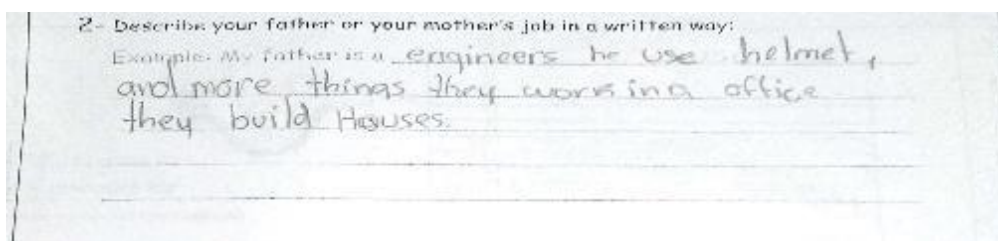 2- Describe your father or your mother's job in a written way:
Example: My father is a engineers he use helmet,
and more things they work in a office
they build Houses.